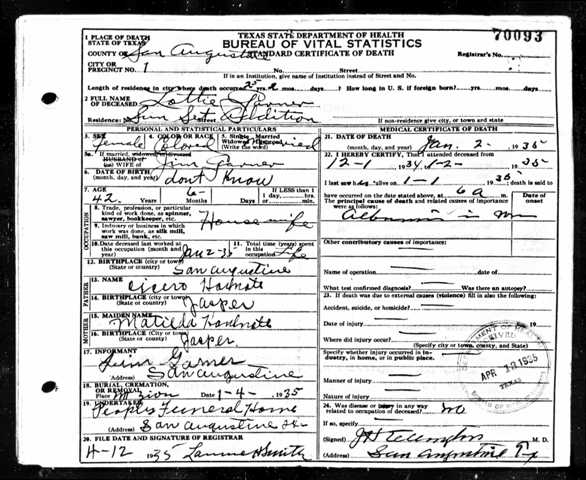 TEXAS STATE DEPARTMENT OF HEALTH
BUREAU OF VITAL STATISTICS
STANDARD CERTIFICATE OF DEATH
70093
1 PLACE OF DEATH
STATE OF TEXAS
COUNTY OF San Augustine
CITY OR
PRECINCT NO. 1
Registrar's No.
No. Street
If in an Institution, give Name of Institution instead of Street and No.
Length of residence in city where death occurred yrs. mos. days? How long in U. S. if foreign born? yrs. mos. days?
2 FULL NAME
OF DECEASED Lottie Garner
Residence: No. Sun Set Street Addition
If non-residence give city, or town and state
PERSONAL AND STATISTICAL PARTICULARS
3. SEX Female
4. COLOR OR RACE Colord
5. Single Married
Widowed Divorced
(Write the word) Married
5a. If married, widowed, divorced
HUSBAND OF
(or) WIFE OF Jim Garner
6. DATE OF BIRTH
(month, day, year) dont Know
7. AGE
42 Years 6 Months Days
If LESS than 1
day, hours
min.
OCCUPATION
8. Trade, profession, or particular
kind of work done, as spinner,
sawyer, bookkeeper, etc. House wife
9. Industry or business in which
work was done, as silk mill,
saw mill, bank, etc.
10. Date deceased last worked at
this occupation (month and
year) Jan 2-35
11. Total time (years)
spent in this
occupation Life
12. BIRTHPLACE (city or town)
(State or country) San Augustine
FATHER
13. NAME Cicero
14. BIRTHPLACE (City or town)
(State or country) Jasper
MOTHER
15. MAIDEN NAME Matilda
16. BIRTHPLACE (City or town)
(State or country) Jasper
17. INFORMANT Jim Garner
(Address) San Augustine
18. BURIAL, CREMATION,
OR REMOVAL
Place Mt Zion Date 1-4- 1935
19. UNDERTAKER Peoples Funeral Home
(Address) San Augustine Tex
20. FILE DATE AND SIGNATURE OF REGISTRAR
4-12 1935 Smith
MEDICAL CERTIFICATE OF DEATH
21. DATE OF DEATH
(month, day, year) Jan. 2- 1935
22. I HEREBY CERTIFY, That I attended deceased from
12-1 1934, 1-2- 1935
I last saw her alive on 1-1 1935, death is said to
have occurred on the date stated above, at 6 a m.
The principal cause of death and related causes of importance
were as follows:
Date of
onset
Other contributory causes of importance:
Name of operation date of
What test confirmed diagnosis? Was there an autopsy?
23. If death was due to external causes (violence) fill in also the following:
Accident, suicide, or homicide?
Date of injury 19
Where did injury occur?
(Specify city or town, county, and state)
Specify whether injury occurred in Industry,
in home, or in public place.
Manner of injury
Nature of injury
24. Was disease or injury in any way
related to occupation of deceased? no
If so, specify
(Signed) M. D.
(Address) San Augustine Tx
APR 19 1935
TEXAS